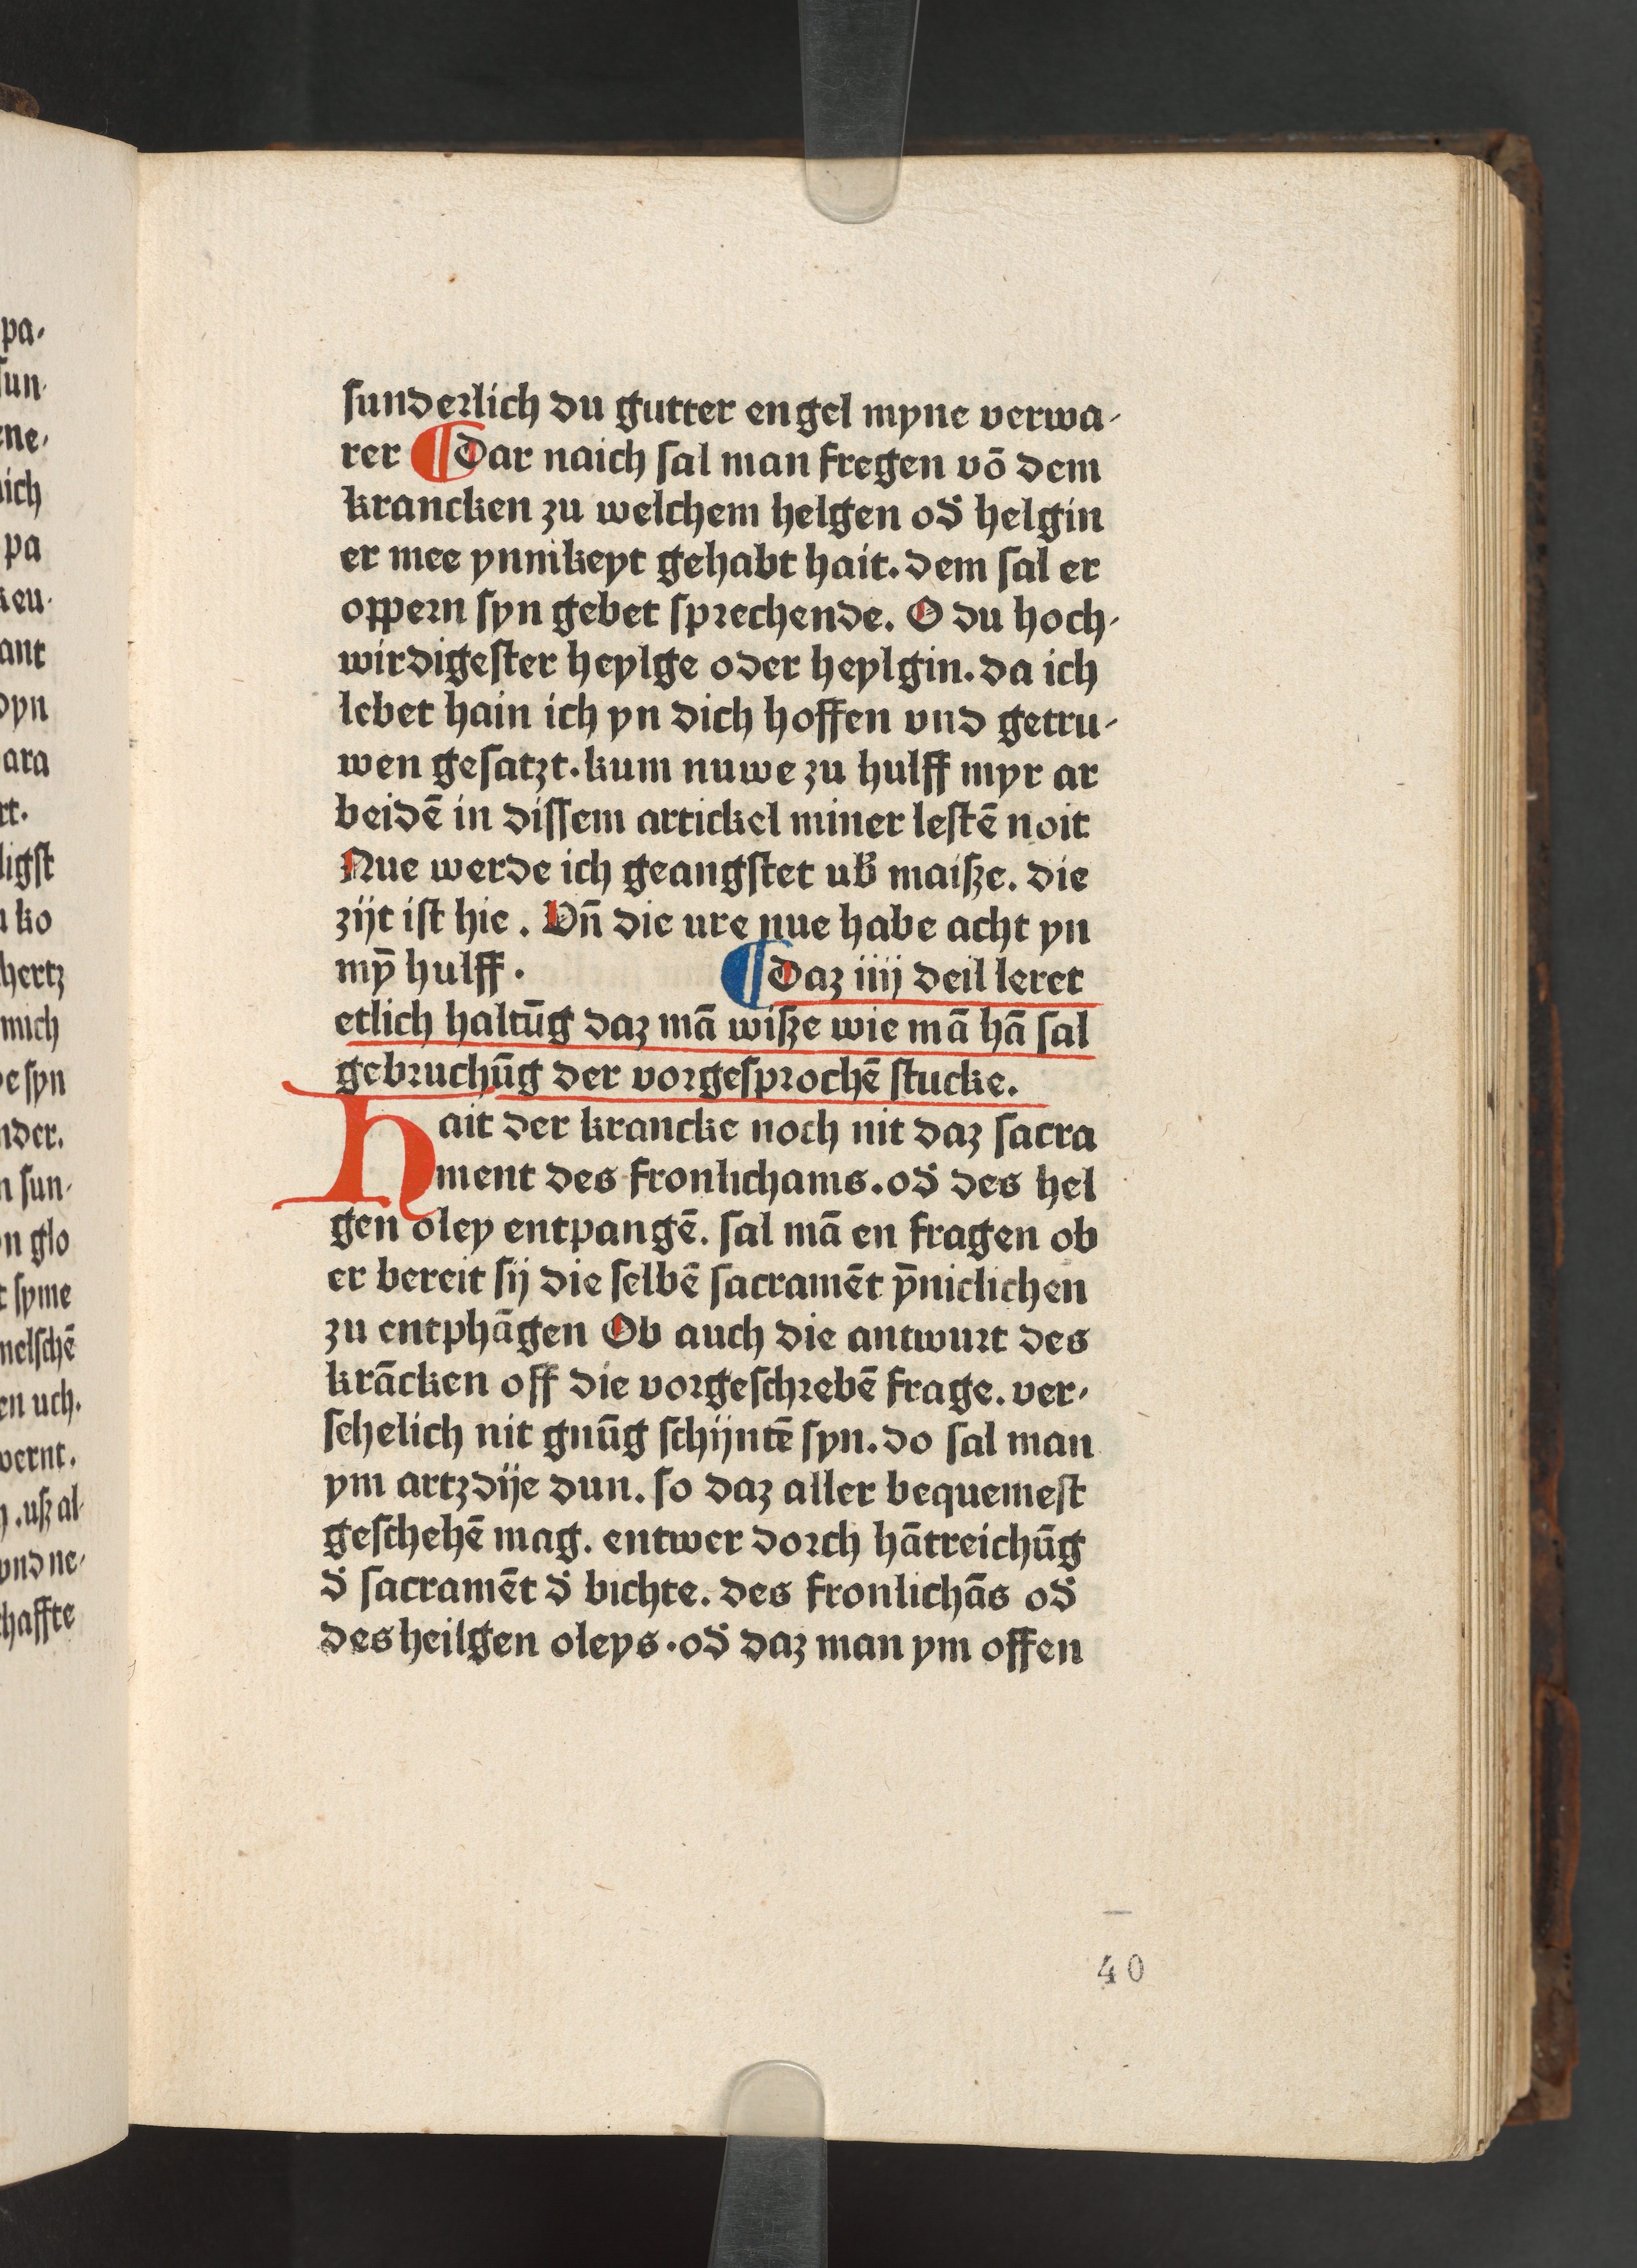 ſunderlich du gutter engel myne verwa⸗
rer ¶ Dar naich ſal man fregen võ dem
krancken zu welchem helgen od̛ helgin
er mee ynnikeyt gehabt hait. dem ſal er
oppern ſyn gebet ſprechende. O du hoch⸗
wirdigeſter heylge oder heylgin. da ich
lebet hain ich yn dich hoffen vnd getru⸗
wen geſatzt. kum nuwe zu hulff myr ar
beidē in diſſem artickel miner leſtē noit
Nue werde ich geangſtet ub̛ maiſze. die
zijt iſt hie. Vn̄ die ure nue habe acht yn
mȳ hulff. ¶ Daz iiij deil leret
etlich haltūg daz mā wiſze wie mā hā ſal
gebruchūg der vorgeſprochē ſtucke.
Hait der krancke noch nit daz ſacra
ment des fronlichams. od̛ des hel
gen oley entpangē. ſal mā en fragen ob
er bereit ſij die ſelbē ſacramēt ȳniclichen
zu entphāgen Ob auch die antwurt des
krācken off die vorgeſchrebē frage. ver⸗
ſehelich nit gnūg ſchijntē ſyn. do ſal man
ym artzdije dun. ſo daz aller bequemeſt
geſchehē mag. entwer dorch hātreichūg
d̛ ſacramēt d̛ bichte. des fronlichās od̛
des heilgen oleys. od̛ daz man ym offen
40